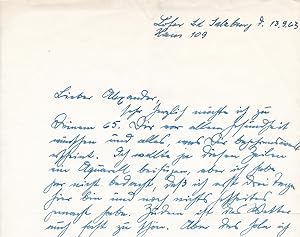 Lofer St Salzburg d. 13.9.63
Haus 109
Lieber Alexander,
Sehr herzlich möchte ich zu
Deinem 65. Dir vor allem Gesundheit
wünschen und alles, was Dir
erscheint. Ich wollte zu diesen Zeilen
ein Aquarell beifügen, aber ich habe
gar nicht bedacht, daß ich erst drei Tage
hier bin und noch nichts
gemacht habe. Zudem ist das Wetter
auch fast zu schön. Aber das hole ich